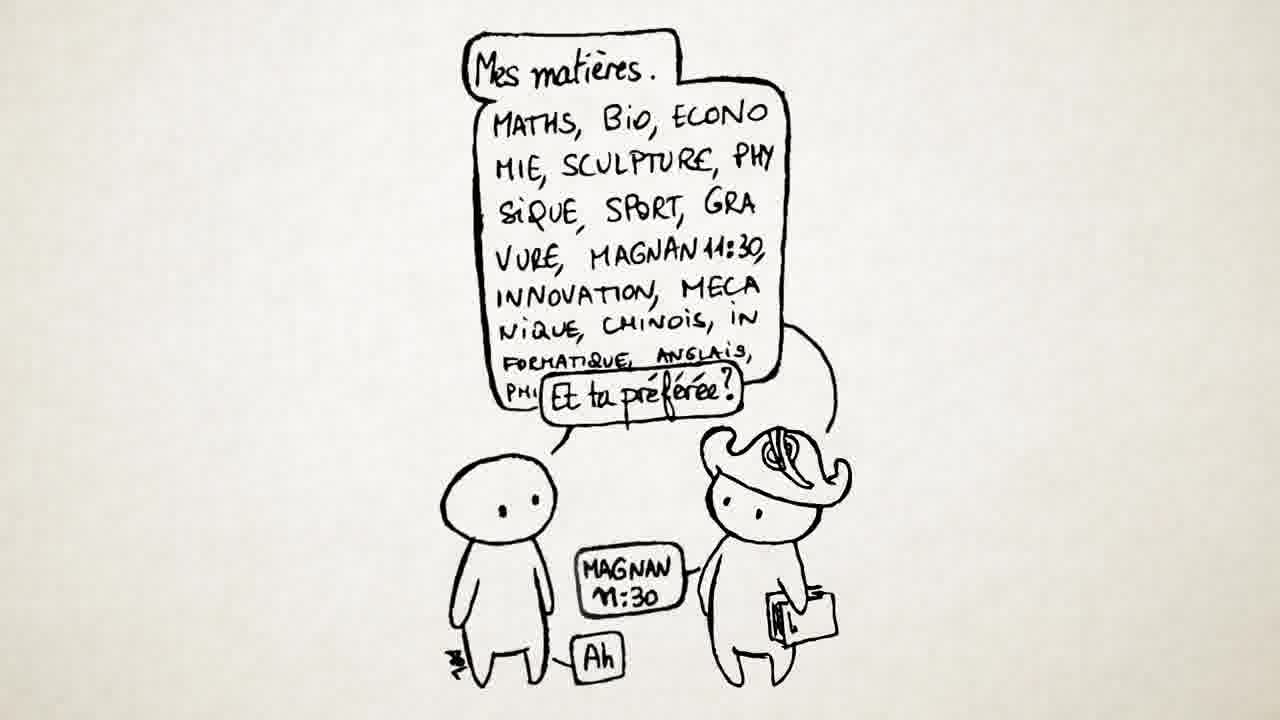 Mes matières.
MATHS, Bio, ECONO
MIE, SCULPTURE, PHY
SiQUE, SPORT, GRA
VURE, MAGNAN 11:30,
INNOVATION, MECA
NiQUE, CHINOiS, iN
FORMATIQUE, ANGLAiS,
PHi
Et ta préférée?
MAGNAN
11:30
Ah